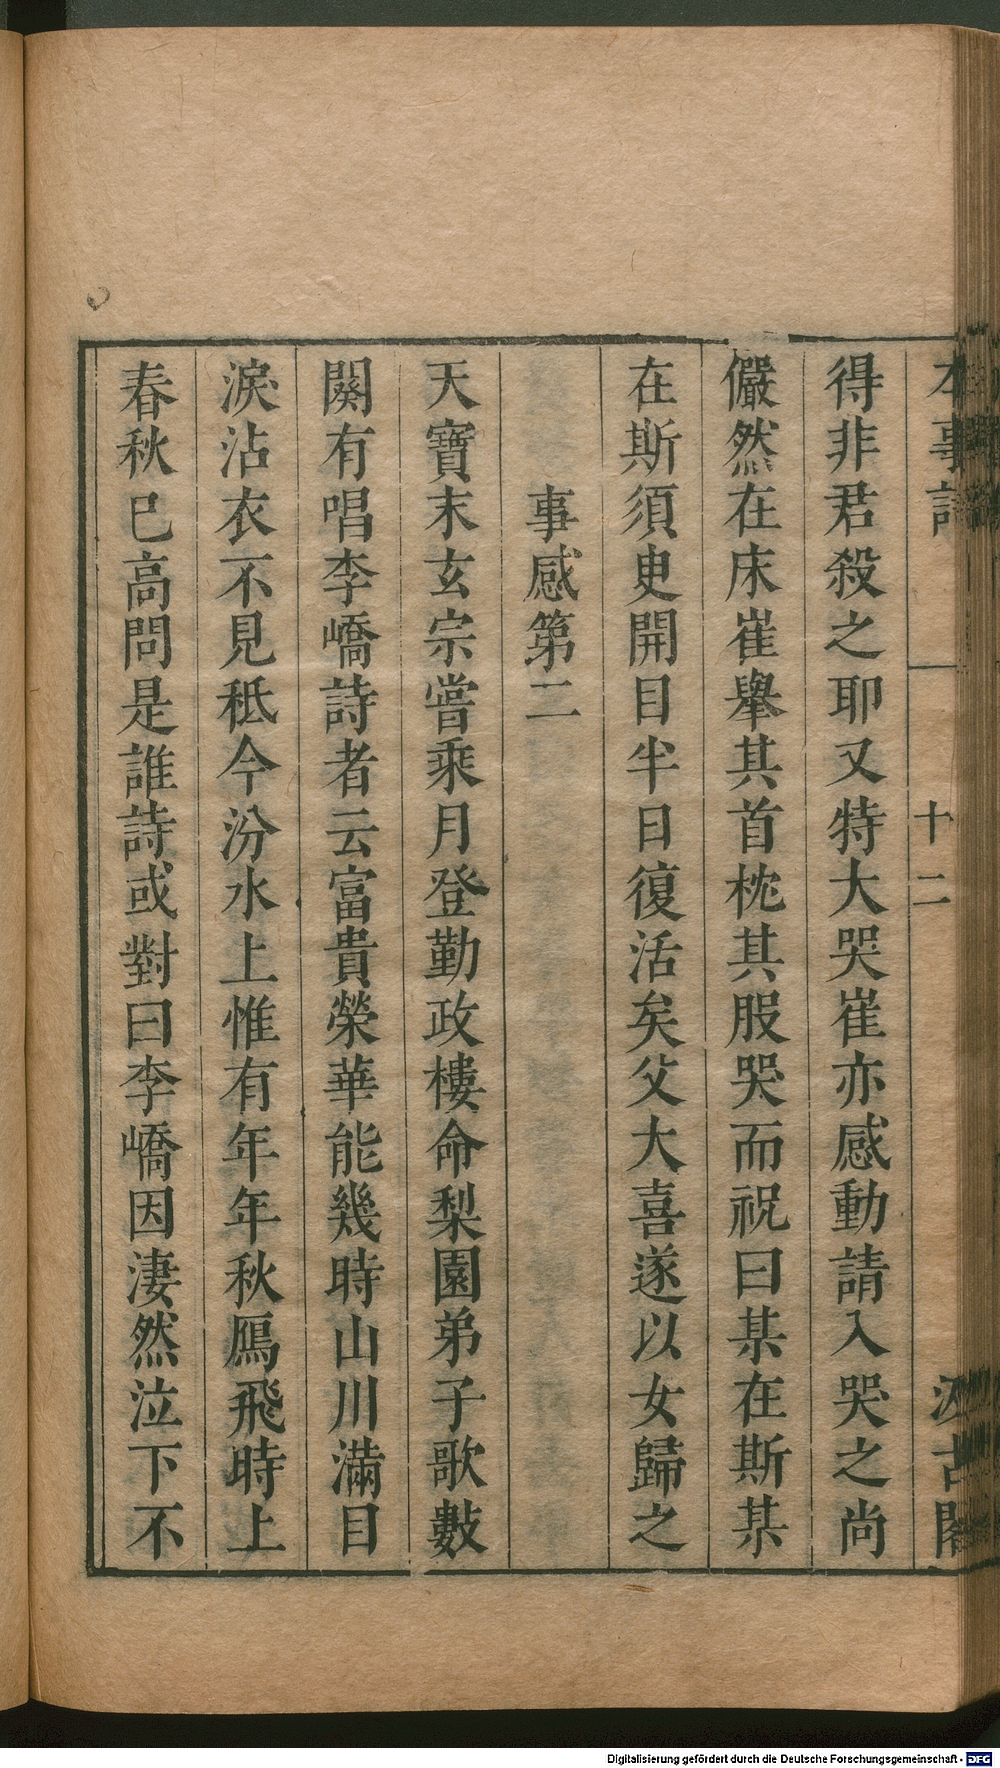 本事詩 十二 汲古閣
得非君殺之耶又特大哭崔亦感動請入哭之尚
儼然在床崔舉其首枕其股哭而祝曰某在斯某
在斯須臾開目半日復活矣父大喜遂以女歸之
事感第二
天寶末玄宗嘗乘月登勤政樓命梨園弟子歌數
闋有唱李嶠詩者云富貴榮華能幾時山川滿目
淚沾衣不見秪今汾水上惟有年年秋鴈飛時上
春秋已高問是誰詩或對曰李嶠因淒然泣下不
Digitalisierung gefördert durch die Deutsche Forschungsgemeinschaft - DFG